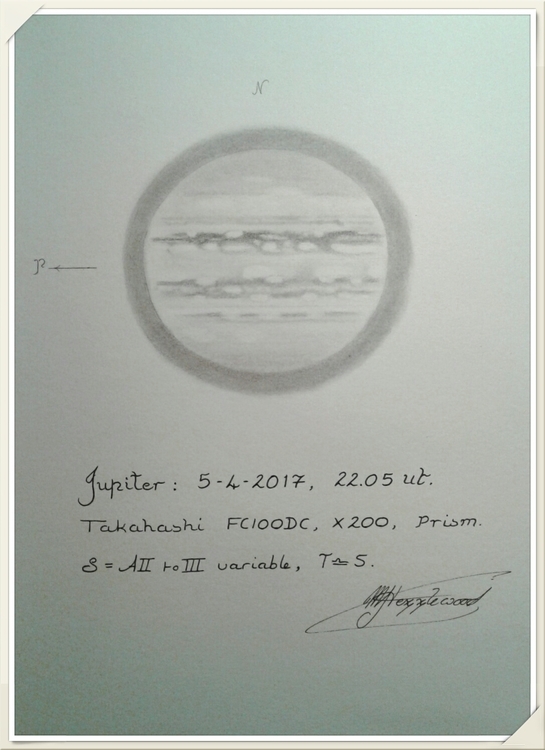 N
P
Jupiter: 5-4-2017, 22.05 ut.
Takahashi FC100DC, x200, Prism.
S = AII to III variable, T≃5.